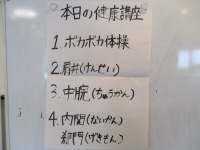 本日の健康講座
1 ポカポカ体操
2.肩井(けんせい)
3.中脘(ちゅうかん)
4.内関(ないかん)
郄門(げきもん)